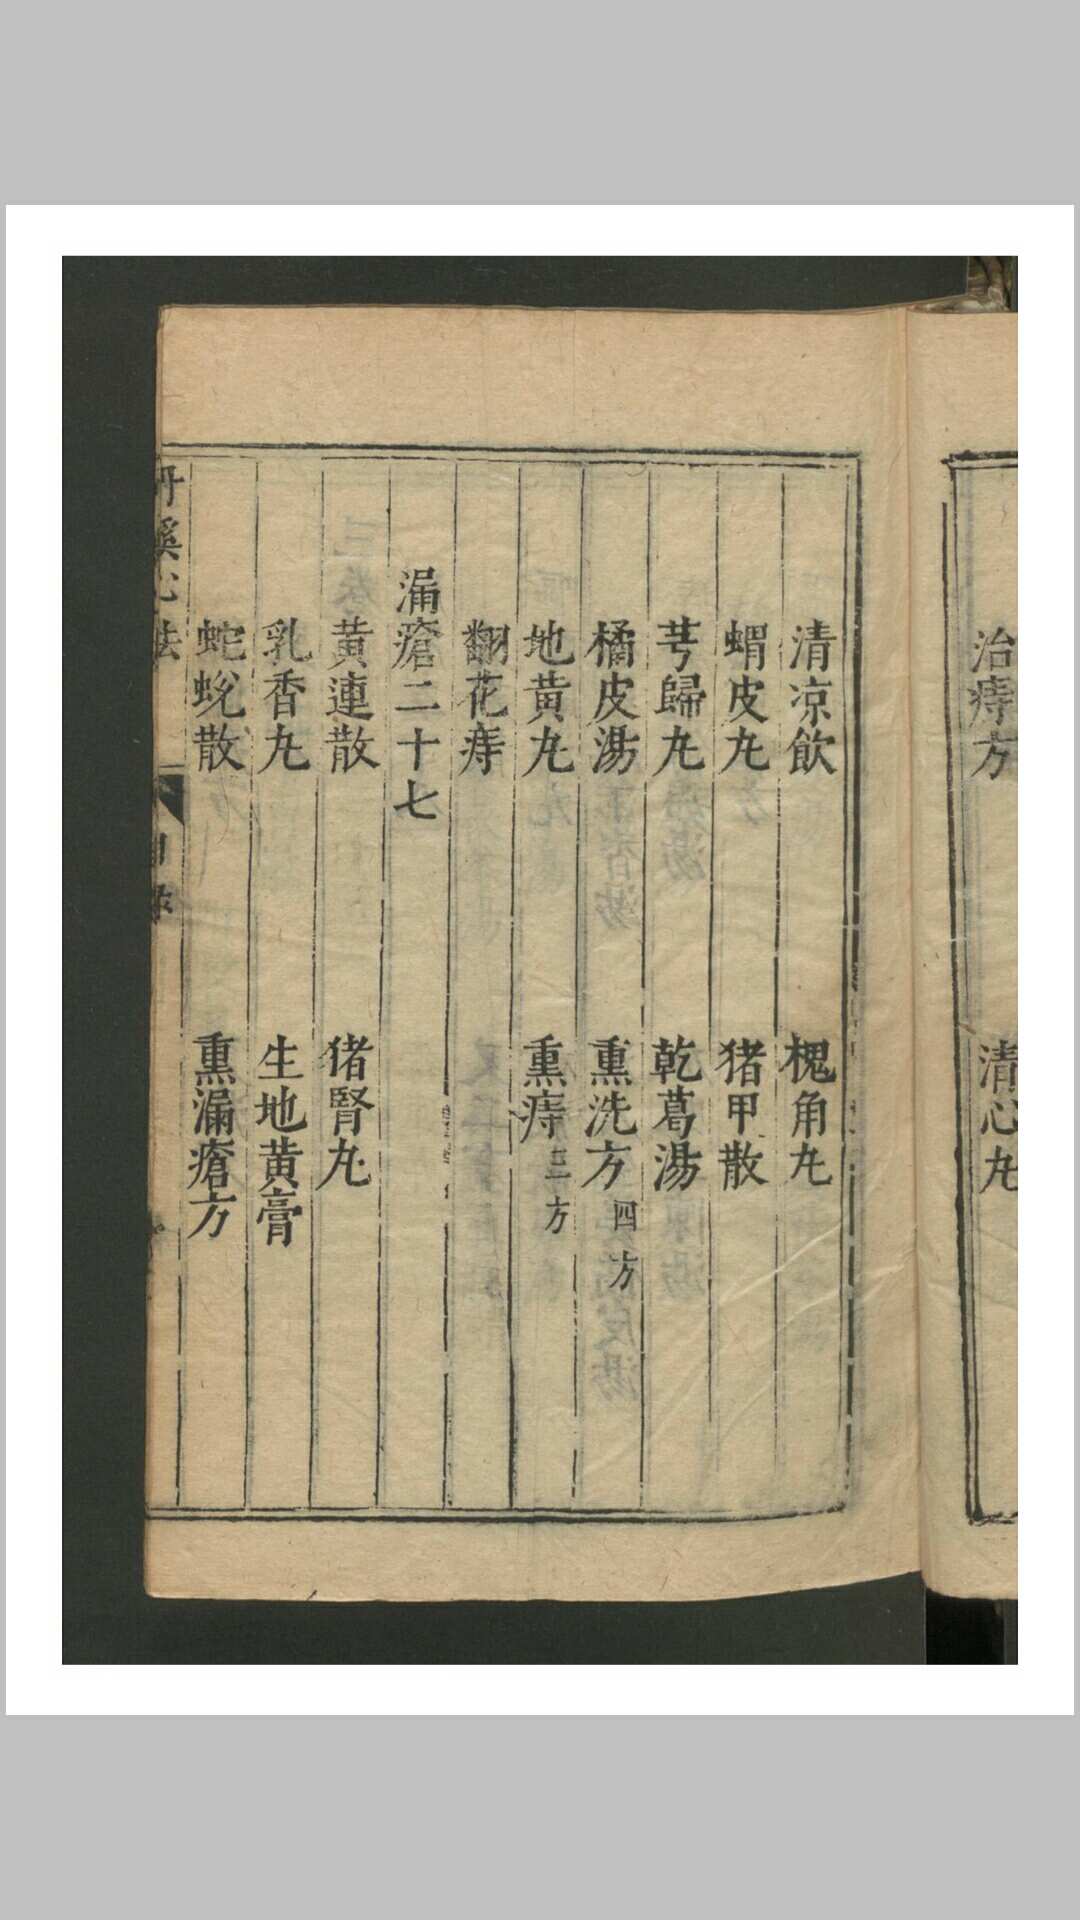 治痔方　清心丸
清凉飲　槐角丸
蝟皮丸　猪甲散
芎歸丸　乾葛湯
橘皮湯　熏洗方四方
地黄丸　熏痔三方
翻花痔
漏瘡二十七
黄連散　猪腎丸
乳香丸　生地黄膏
蛇蛻散　熏漏瘡方
丹溪心法　目錄